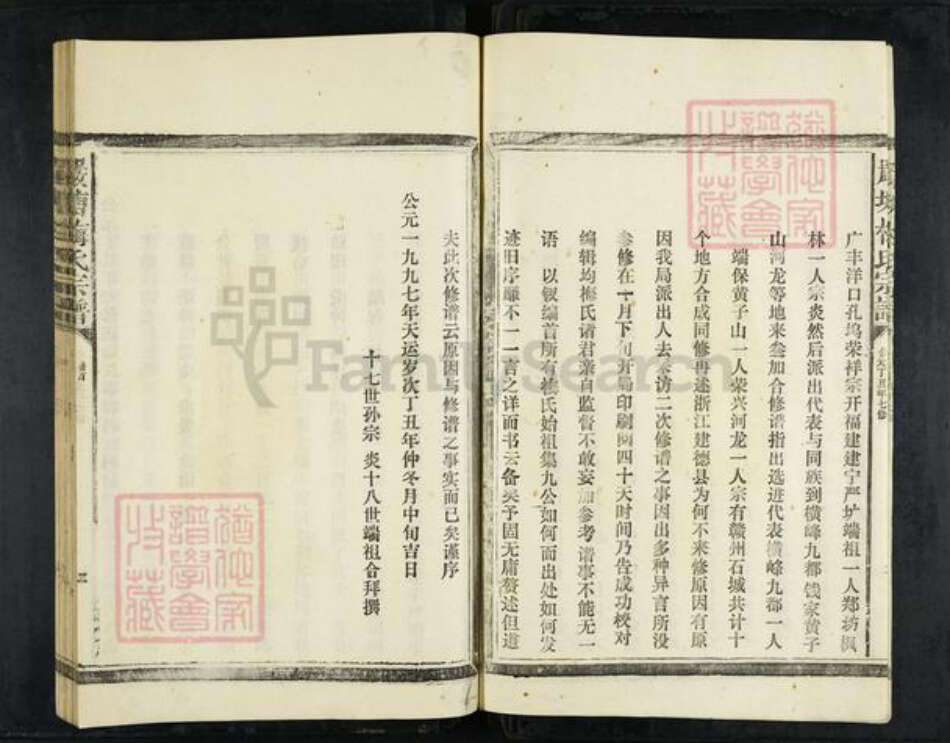 广丰洋口孔坞荣祥宗开福建建宁严圹端祖一人郑坊枫
林一人宗炎然后派出代表与同族到横峰九都饯家黄子
山河龙等地来叁加合修谱指出选进代表横峰九都一人
端保黄子山一人荣兴河龙一人宗有赣州石城共计十
个地方合成同修再述浙江建德县为何不来修原因有原
因我局派出人去奉访二次修谱之事因出多种异言所没
参修在十月下旬开局印刷圆四十天时间乃告成功校对
编辑均梅氏诸君亲自监督不敢妄加参考谱事不能无一
语 以叙编首所有梅氏始祖集九公如何而出处如何发
迹旧序雕不一一言之详而书云备矣予固无庸赘述但道
夫此次修谱云原因与修谱之事实而已矣谨序
公元一九九七年天运岁次丁丑年仲冬月中旬吉日
十七世孙宗 炎十八世端祖合拜撰
梅氏宗譜
卷首
三
FamilySearch
猶他家譜學會收藏
猶他家譜學會收藏